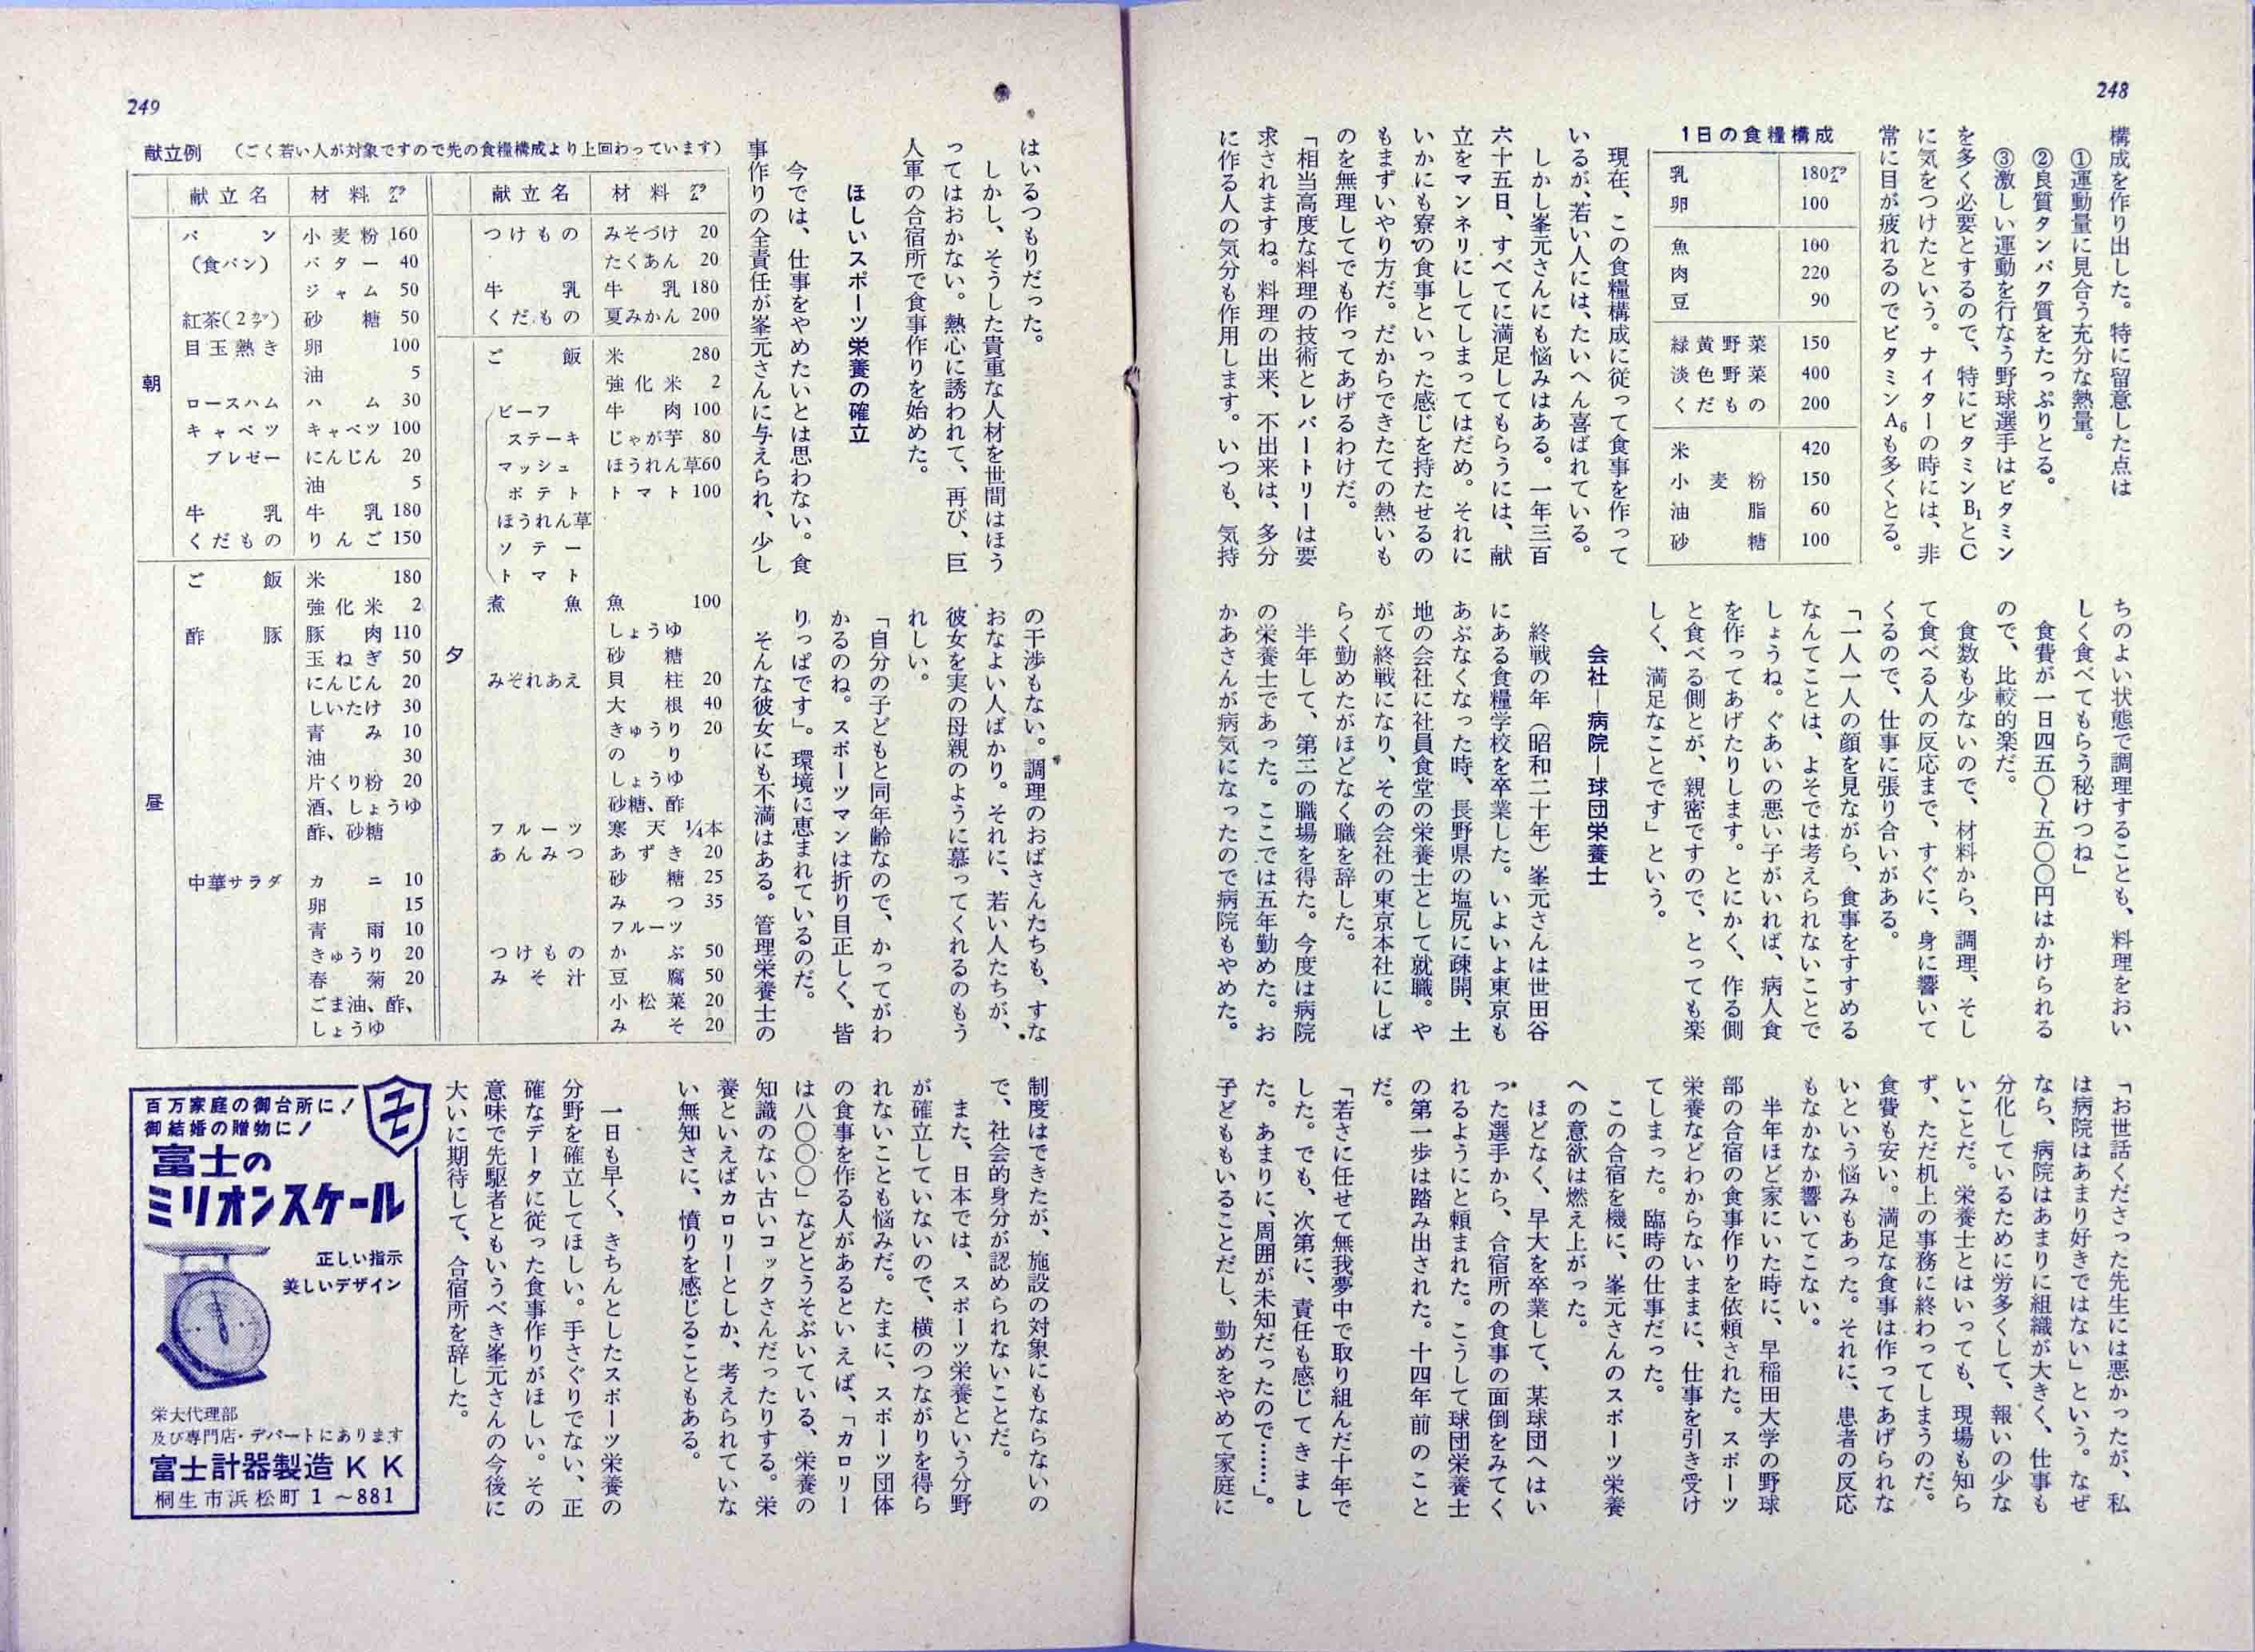 248
構成を作り出した。特に留意した点は
①運動量に見合う充分な熱量。
②良質タンパク質をたっぷりとる。
③激しい運動を行なう野球選手はビタミン
を多く必要とするので、特にビタミンB₁とC
に気をつけたという。ナイターの時には、非
常に目が疲れるのでビタミンA₆も多くとる。
1日の食糧構成
乳 180グラ
卵 100
魚 100
肉 220
豆 90
緑黄野菜 150
淡色野菜 400
くだもの 200
米 420
小麦粉 150
油脂 60
砂糖 100
現在、この食糧構成に従って食事を作って
いるが、若い人には、たいへん喜ばれている。
しかし峯元さんにも悩みはある。一年三百
六十五日、すべてに満足してもらうには、献
立をマンネリにしてしまってはだめ。それに
いかにも寮の食事といった感じを持たせるの
もまずいやり方だ。だからできたての熱いも
のを無理してでも作ってあげるわけだ。
「相当高度な料理の技術とレパートリーは要
求されますね。料理の出来、不出来は、多分
に作る人の気分も作用します。いつも、気持
ちのよい状態で調理することも、料理をおい
しく食べてもらう秘けつね」
食費が一日四五〇〜五〇〇円はかけられる
ので、比較的楽だ。
食数も少ないので、材料から、調理、そし
て食べる人の反応まで、すぐに、身に響いて
くるので、仕事に張り合いがある。
「一人一人の顔を見ながら、食事をすすめる
なんてことは、よそでは考えられないことで
しょうね。ぐあいの悪い子がいれば、病人食
を作ってあげたりします。とにかく、作る側
と食べる側とが、親密ですので、とっても楽
しく、満足なことです」という。
会社―病院―球団栄養士
終戦の年（昭和二十年）峯元さんは世田谷
にある食糧学校を卒業した。いよいよ東京も
あぶなくなった時、長野県の塩尻に疎開、土
地の会社に社員食堂の栄養士として就職。や
がて終戦になり、その会社の東京本社にしば
らく勤めたがほどなく職を辞した。
半年して、第二の職場を得た。今度は病院
の栄養士であった。ここでは五年勤めた。お
かあさんが病気になったので病院もやめた。
「お世話くださった先生には悪かったが、私
は病院はあまり好きではない」という。なぜ
なら、病院はあまりに組織が大きく、仕事も
分化しているために労多くして、報いの少な
いことだ。栄養士とはいっても、現場も知ら
ず、ただ机上の事務に終わってしまうのだ。
食費も安い。満足な食事は作ってあげられな
いという悩みもあった。それに、患者の反応
もなかなか響いてこない。
半年ほど家にいた時に、早稲田大学の野球
部の合宿の食事作りを依頼された。スポーツ
栄養などわからないままに、仕事を引き受け
てしまった。臨時の仕事だった。
この合宿を機に、峯元さんのスポーツ栄養
への意欲は燃え上がった。
ほどなく、早大を卒業して、某球団へはい
った選手から、合宿所の食事の面倒をみてく
れるようにと頼まれた。こうして球団栄養士
の第一歩は踏み出された。十四年前のこと
だ。
「若さに任せて無我夢中で取り組んだ十年で
した。でも、次第に、責任も感じてきまし
た。あまりに、周囲が未知だったので……」。
子どももいることだし、勤めをやめて家庭に
249
はいるつもりだった。
しかし、そうした貴重な人材を世間はほう
ってはおかない。熱心に誘われて、再び、巨
人軍の合宿所で食事作りを始めた。
ほしいスポーツ栄養の確立
今では、仕事をやめたいとは思わない。食
事作りの全責任が峯元さんに与えられ、少し
の干渉もない。調理のおばさんたちも、すな
おなよい人ばかり。それに、若い人たちが、
彼女を実の母親のように慕ってくれるのもう
れしい。
「自分の子どもと同年齢なので、かってがわ
かるのね。スポーツマンは折り目正しく、皆
りっぱです」。環境に恵まれているのだ。
そんな彼女にも不満はある。管理栄養士の
制度はできたが、施設の対象にもならないの
で、社会的身分が認められないことだ。
また、日本では、スポーツ栄養という分野
が確立していないので、横のつながりを得ら
れないことも悩みだ。たまに、スポーツ団体
の食事を作る人があるといえば、「カロリー
は八〇〇〇」などとうそぶいている、栄養の
知識のない古いコックさんだったりする。栄
養といえばカロリーとしか、考えられていな
い無知さに、憤りを感じることもある。
一日も早く、きちんとしたスポーツ栄養の
分野を確立してほしい。手さぐりでない、正
確なデータに従った食事作りがほしい。その
意味で先駆者ともいうべき峯元さんの今後に
大いに期待して、合宿所を辞した。
献立例　（ごく若い人が対象ですので先の食糧構成より上回わっています）
献立名 材料 グラ
朝
パン 小麦粉 160
（食パン） バター 40
ジャム 50
紅茶（2カップ） 砂糖 50
目玉熱き 卵 100
油 5
ロースハム ハム 30
キャベツ キャベツ 100
ブレゼー にんじん 20
油 5
牛乳 牛乳 180
くだもの りんご 150
昼
ご飯 米 180
強化米 2
酢豚 豚肉 110
玉ねぎ 50
にんじん 20
しいたけ 30
青み 10
油 30
片くり粉 20
酒、しょうゆ
酢、砂糖
中華サラダ カニ 10
卵 15
青雨 10
きゅうり 20
春菊 20
ごま油、酢、
しょうゆ
献立名 材料 グラ
つけもの みそづけ 20
たくあん 20
牛乳 牛乳 180
くだもの 夏みかん 200
夕
ご飯 米 280
強化米 2
ビーフ 牛肉 100
ステーキ じゃが芋 80
マッシュ ほうれん草60
ポテト トマト 100
ほうれん草
ソテー
トマト
煮魚 魚 100
しょうゆ
砂糖
みぞれあえ 貝柱 20
大根 40
きゅうり 20
のり
しょうゆ
砂糖、酢
フルーツ 寒天 ¼本
あんみつ あずき 20
砂糖 25
みつ 35
フルーツ
つけもの かぶ 50
みそ汁 豆腐 50
小松菜 20
みそ 20
百万家庭の御台所に！
御結婚の贈物に！
富士の
ミリオンスケール
正しい指示
美しいデザイン
栄大代理部
及び専門店・デパートにあります
富士計器製造KK
桐生市浜松町1〜881